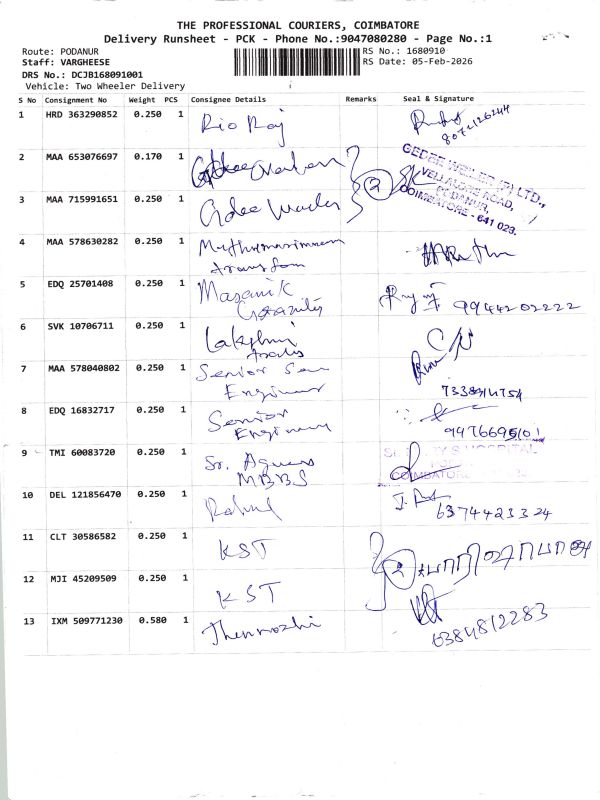 THE PROFESSIONAL COURIERS, COIMBATORE
Delivery Runsheet - PCK - Phone No.:9047080280 - Page No.:1
Route: PODANUR
RS No.: 1680910
Staff: VARGHEESE
RS Date: 05-Feb-2026
DRS No.: DCJB168091001
Vehicle: Two Wheeler Delivery
S No Consignment No Weight PCS Consignee Details Remarks Seal & Signature
1 HRD 363290852 0.250 1 Rio Raj
8072126244
2 MAA 653076697 0.170 1
GEDEE WEILER (P) LTD.,
VELLALORE ROAD,
PODANUR,
COIMBATORE - 641 023.
3 MAA 715991651 0.250 1 Gedee Weiler
2
4 MAA 578630282 0.250 1
5 EDQ 25701408 0.250 1
9944202222
6 SVK 10706711 0.250 1 Lakshmi
7 MAA 578040802 0.250 1 Senior
Engineer
8 EDQ 16832717 0.250 1 Senior
Engineer
9976695101
9 TMI 60083720 0.250 1 Sr. Agnes
MBBS
HOSPITAL
COIMBATORE
10 DEL 121856470 0.250 1 Rahul
6374423324
11 CLT 30586582 0.250 1 KST
2
12 MJI 45209509 0.250 1 KST
13 IXM 509771230 0.580 1 Thenmozhi
6384812283